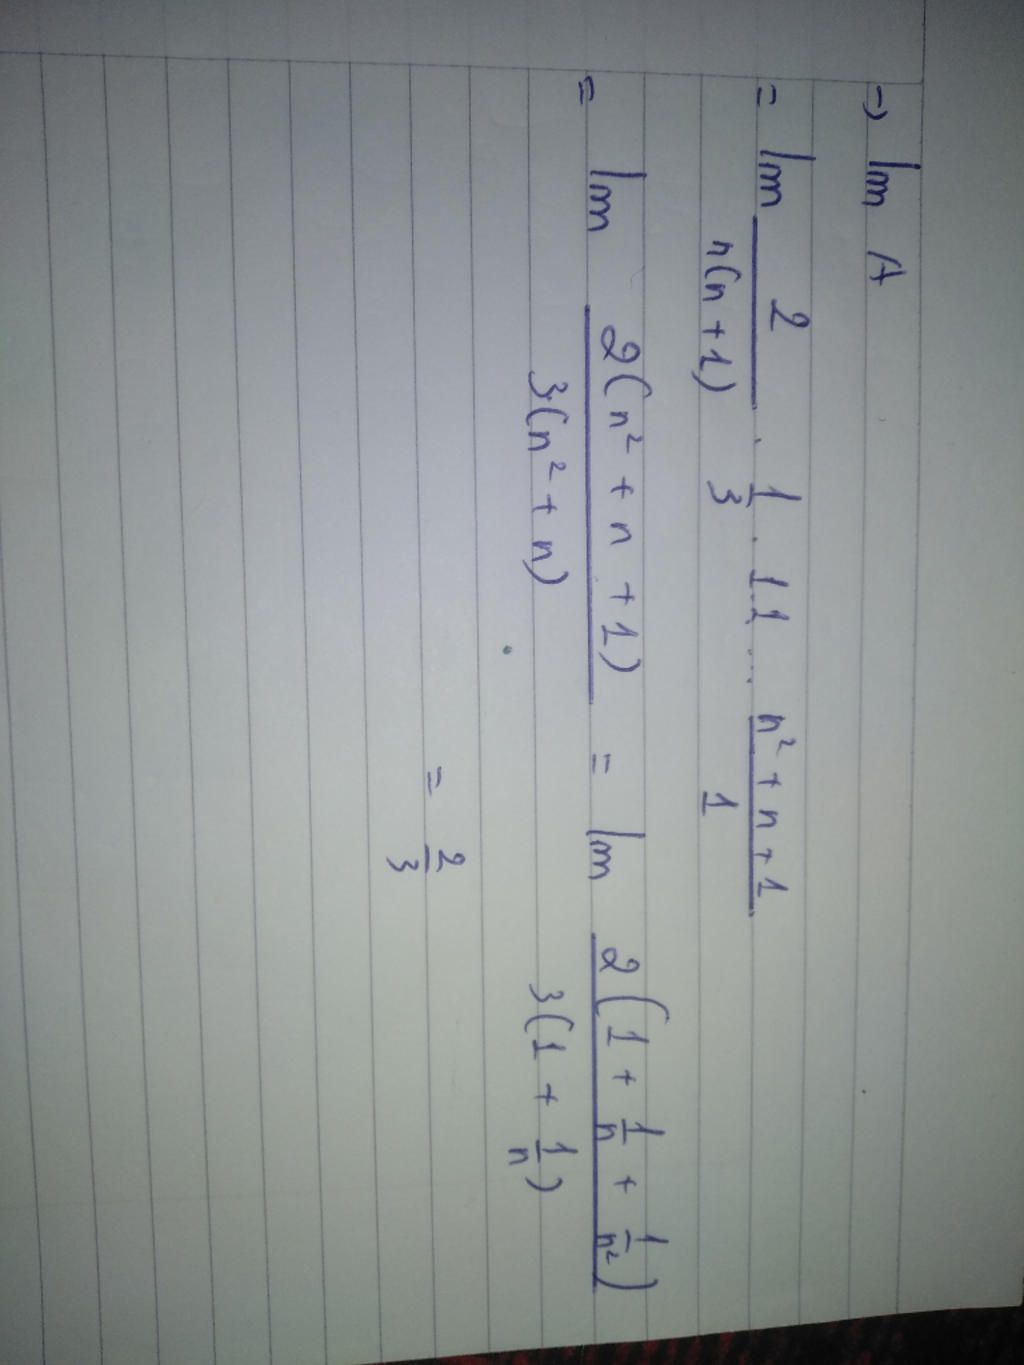 → lim A
= lim 2/(n(n+1)) · 1/3 · 1.1 ... (n² + n + 1)/1
= lim 2(n² + n + 1)/(3(n² + n)) = lim 2(1 + 1/n + 1/n²)/(3(1 + 1/n))
= 2/3